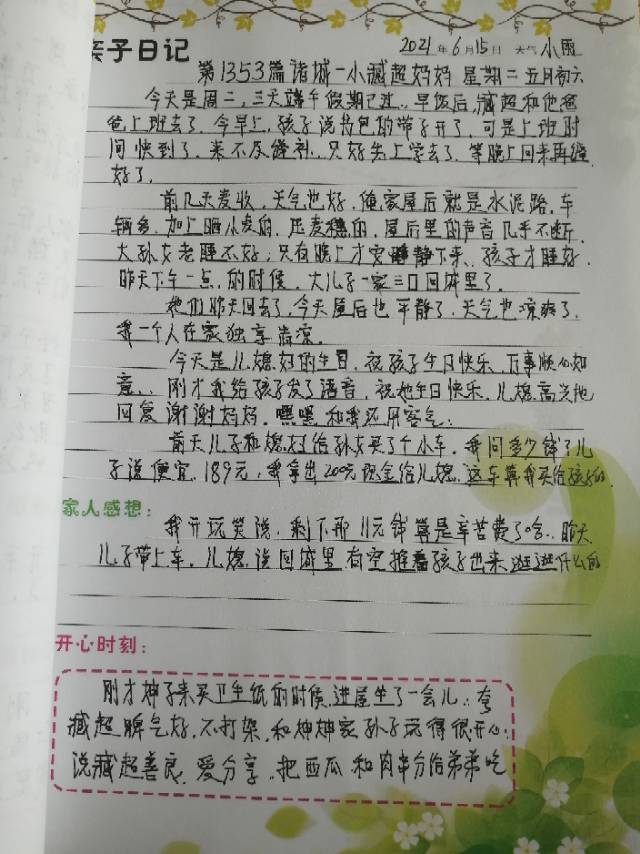 亲子日记 2021年6月15日 天气小雨
第1353篇诸城一小臧超妈妈 星期二五月初六
今天是周二,三天端午假期已过..早饭后,臧超和他爸
爸上班去了.今早上,孩子说书包的带子开了.可是上班时
间快到了.来不及缝补.只好先上学去了.等晚上回来再缝
好了.
前几天麦收.天气也好.俺家屋后就是水泥路.车
辆多.加上晒小麦的.压麦穗的.屋后里的声音几乎不断.
大孙女老睡不好,只有晚上才安静下来、孩子才睡好.
昨天下午一点.的时候.大儿子一家三口回城里了.
她们昨天回去了,今天屋后也平静了.天气也凉爽了.
我一个人在家独享清凉.
今天是儿媳妇的生日.祝孩子生日快乐.万事顺心如
意..刚才我给孩子发了语音,祝她生日快乐.儿媳高兴地
回复谢谢妈妈.嘿嘿.和我还用客气:
前天儿子和媳妇给孙女买了个小车.我问多少钱了儿
子说便宜.189元,我拿出200元现金给儿媳.这车算我买给孩子的.
家人感想:
我开玩笑说.剩下那11元钱算是辛苦费了哈..昨天
儿子带上车.儿媳说回城里有空推着孩子出来逛逛什么的
开心时刻:
刚才婶子来买卫生纸的时候.进屋坐了一会儿.夸
臧超脾气好.不打架.和婶婶家孙子玩得很开心:
说臧超善良.爱分享.把西瓜和肉串分给弟弟吃